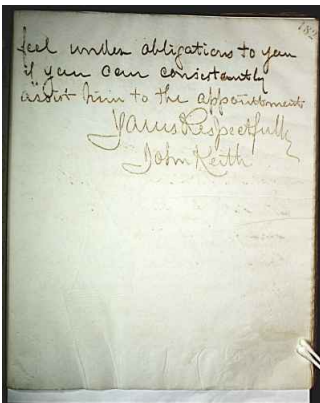 feel under obligations to you
if you can consistantly
assist him to the appointment
Yours Respectfully
John Keith